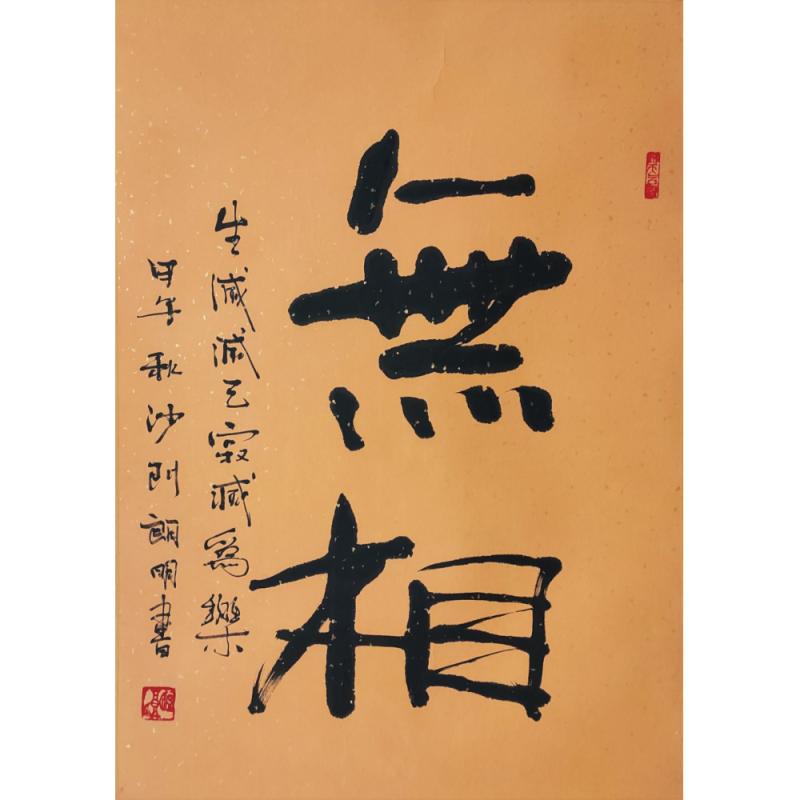 無相
生滅滅已寂滅爲樂
甲午秋沙朗明書